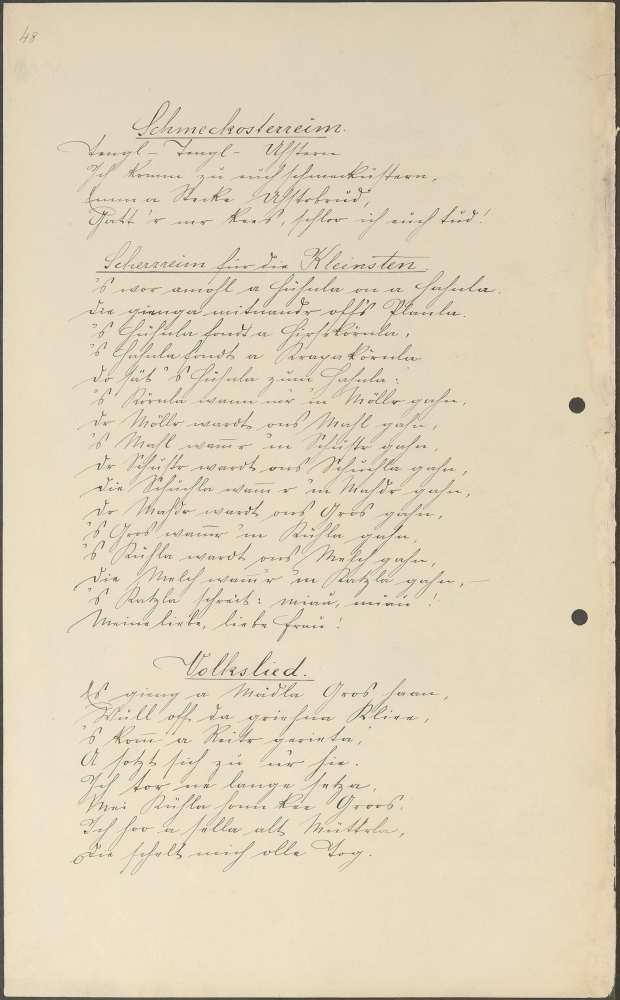 48
Schmeckosterreim.
Tengl - Tengl - Uhstern
Ich komm zu euch schmeckustern,
a Stecke
Gatt'r mr kees, schlor ich euch tud!
Scherzreim für die Kleinsten.
's wor amohl a Hühnla on a Hahnla.
die gienga mitnandr off's Planla.
's Hühnla fondt a Hirsekörnla,
's Hahnla fondt a körnla
do sät 's Hühnla zum Hahnla:
's Körnla wann mr 'm Möllr gahn,
dr Möllr wardt ons Mahl gahn,
's Mahl wamr 'm Schustr gahn,
dr Schustr wardt ons Schuchla gahn,
die Schuchla wam̄r 'm Mahdr gahn,
dr Mahdr wardt ons Gros gahn,
's Gros wam̄r 'm Kuhla gahn,
's Kuhla wardt ons Melch gahn,
die Melch wam̄r 'm Katzla gahn, —
's Katzla schreit: miau, miau!
Meine liebe, liebe Frau!
Volkslied.
Es gieng a Madla Gros haan,
Wull off da griehna Kliee,
's kom̄ a Reitr gerieta,
A sotzt sich zu 'er hie.
Ich tor ne lange setza,
Mei Kuhla honn kee Groos.
Ich hoo a sella alt Mutterla,
Die schelt mich olle Tog.